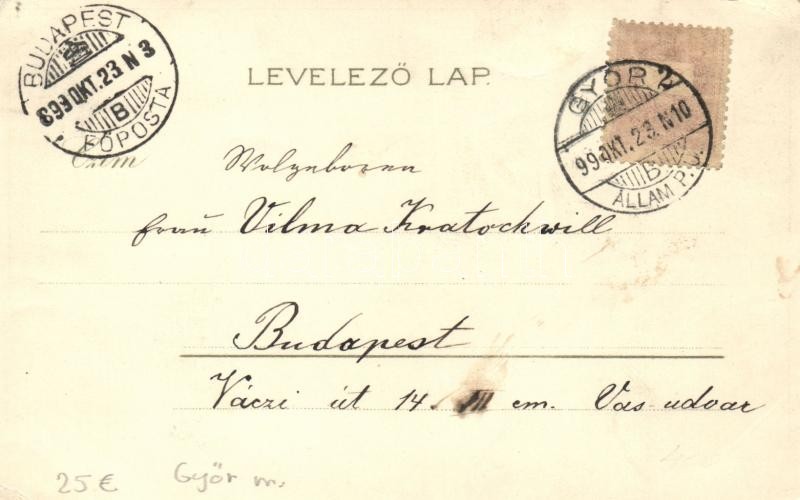 BUDAPEST
899 OKT. 23 N 3
B
FŐPOSTA
LEVELEZŐ LAP.
GYŐR
99 OKT. 23. N10
B
ÁLLAM P.
Czím
Wolgeboren
Frau Vilma Kratochwill
Budapest
Váczi út 14. III em. Vas udvar
25 €
Győr m.